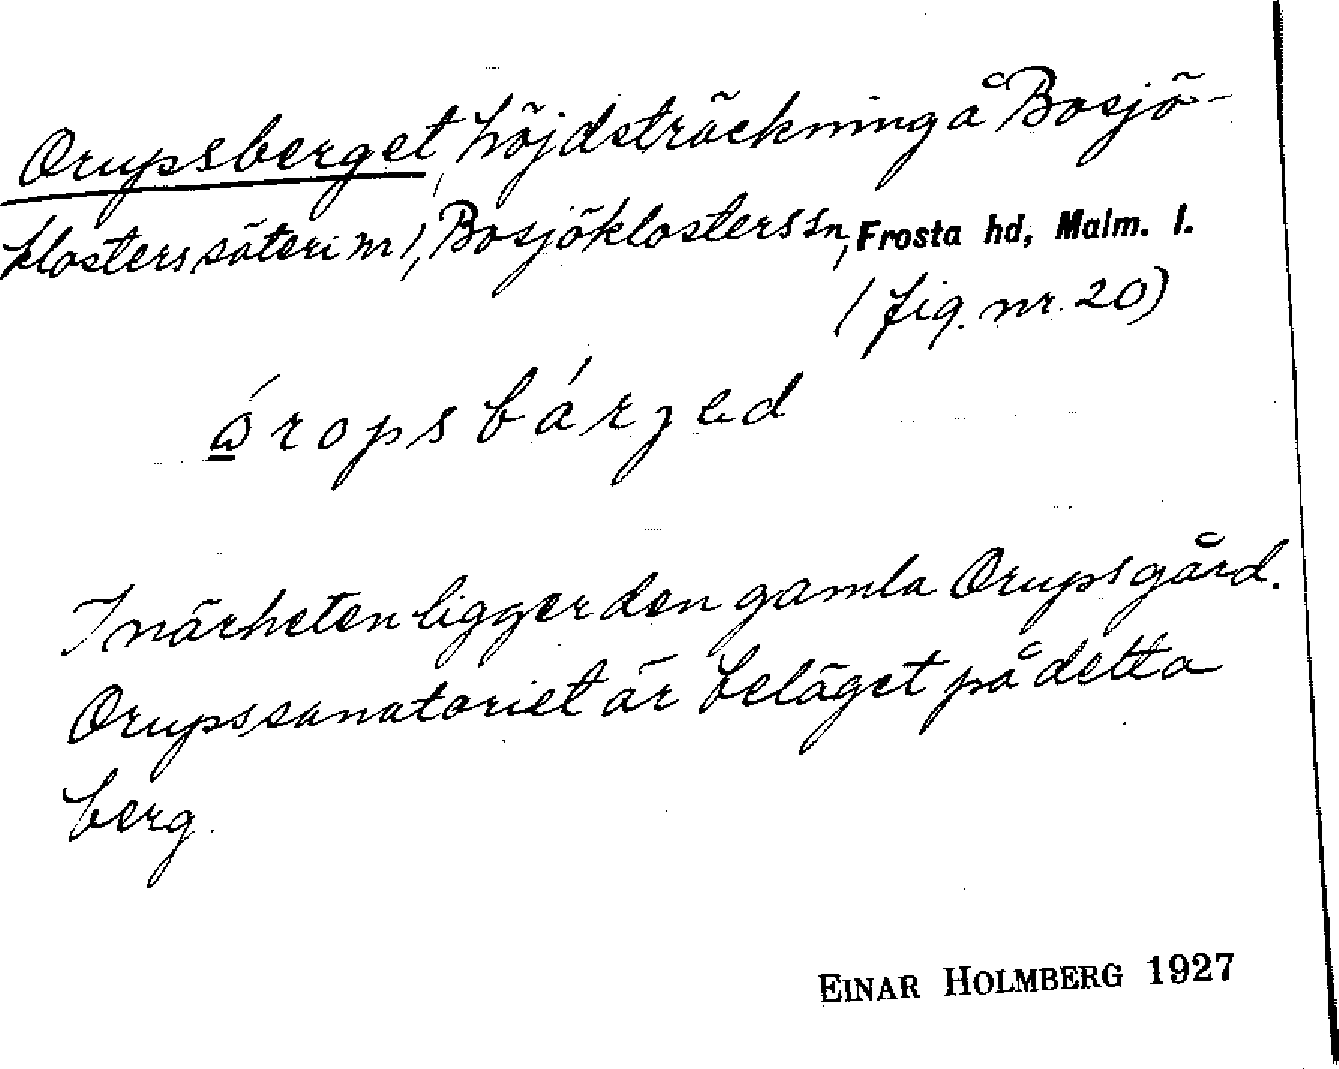 Orupsberget, höjdsträckning å Bosjö-
klosters säteri m 1, Bosjöklosters sn, Frosta hd, Malm. l.
(fig. nr. 20)
bárʒəd
I närheten ligger den gamla Orups gård.
Orupssanatoriet är beläget på detta
berg.
EINAR HOLMBERG 1927